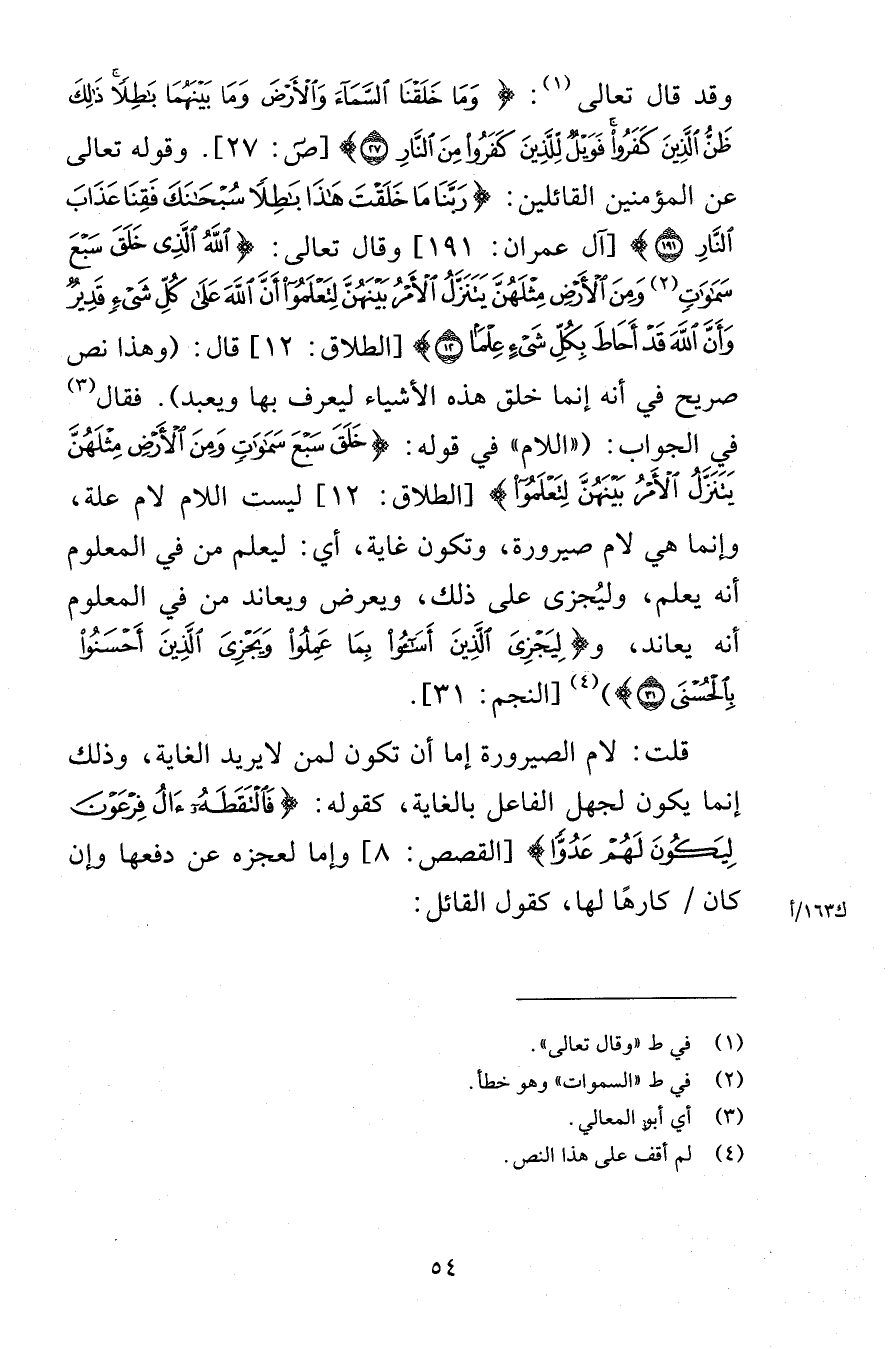 وقد قال تعالى(١): ﴿ وَمَا خَلَقْنَا ٱلسَّمَآءَ وَٱلْأَرْضَ وَمَا بَيْنَهُمَا بَٰطِلًا ۚ ذَٰلِكَ
ظَنُّ ٱلَّذِينَ كَفَرُوا۟ ۚ فَوَيْلٌ لِّلَّذِينَ كَفَرُوا۟ مِنَ ٱلنَّارِ ٢٧﴾ [صٓ: ٢٧]. وقوله تعالى
عن المؤمنين القائلين: ﴿ رَبَّنَا مَا خَلَقْتَ هَٰذَا بَٰطِلًا سُبْحَٰنَكَ فَقِنَا عَذَابَ
ٱلنَّارِ ١٩١﴾ [آل عمران: ١٩١] وقال تعالى: ﴿ ٱللَّهُ ٱلَّذِى خَلَقَ سَبْعَ
سَمَٰوَٰتٍ(٢) وَمِنَ ٱلْأَرْضِ مِثْلَهُنَّ يَتَنَزَّلُ ٱلْأَمْرُ بَيْنَهُنَّ لِتَعْلَمُوٓا۟ أَنَّ ٱللَّهَ عَلَىٰ كُلِّ شَىْءٍ قَدِيرٌ
وَأَنَّ ٱللَّهَ قَدْ أَحَاطَ بِكُلِّ شَىْءٍ عِلْمًۢا ١٢﴾ [الطلاق: ١٢] قال: (وهذا نص
صريح في أنه إنما خلق هذه الأشياء ليعرف بها ويعبد). فقال(٣)
في الجواب: («اللام» في قوله: ﴿ خَلَقَ سَبْعَ سَمَٰوَٰتٍ وَمِنَ ٱلْأَرْضِ مِثْلَهُنَّ
يَتَنَزَّلُ ٱلْأَمْرُ بَيْنَهُنَّ لِتَعْلَمُوٓا۟ ﴾ [الطلاق: ١٢] ليست اللام لام علة،
وإنما هي لام صيرورة، وتكون غاية، أي: ليعلم من في المعلوم
أنه يعلم، وليُجزى على ذلك، ويعرض ويعاند من في المعلوم
أنه يعاند، و﴿ لِيَجْزِىَ ٱلَّذِينَ أَسَٰٓـُٔوا۟ بِمَا عَمِلُوا۟ وَيَجْزِىَ ٱلَّذِينَ أَحْسَنُوا۟
بِٱلْحُسْنَى ٣١﴾)(٤) [النجم: ٣١].
قلت: لام الصيرورة إما أن تكون لمن لايريد الغاية، وذلك
إنما يكون لجهل الفاعل بالغاية، كقوله: ﴿ فَٱلْتَقَطَهُۥٓ ءَالُ فِرْعَوْنَ
لِيَكُونَ لَهُمْ عَدُوًّا ﴾ [القصص: ٨] وإما لعجزه عن دفعها وإن
كان / كارهًا لها، كقول القائل:
ك١٦٣/أ
(١) في ط «وقال تعالى».
(٢) في ط «السموات» وهو خطأ.
(٣) أي أبو المعالي.
(٤) لم أقف على هذا النص.
٥٤